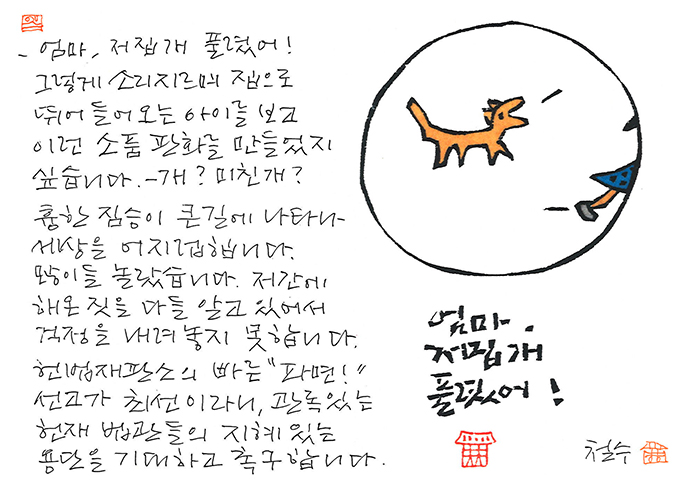 - 엄마, 저집개 풀렸어!
그렇게 소리지르며 집으로
뛰어들어오는 아이를 보고
이런 소품 판화를 만들었지
싶습니다. - 개? 미친개?
흉한 짐승이 큰길에 나타나
세상을 어지럽힙니다.
많이들 놀랐습니다. 저간에
해온 짓을 다들 알고 있어서
걱정을 내려놓지 못합니다.
헌법재판소의 빠른 "파면!"
선고가 최선이라니, 관록있는
헌재 법관들의 지혜있는
용단을 기대하고 촉구합니다.
엄마,
저집개
풀렸어!
철수